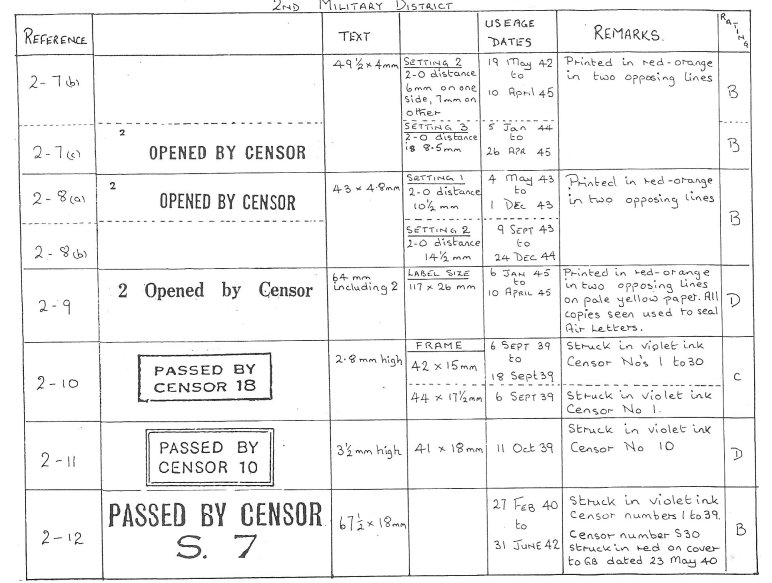 2ND MILITARY DISTRICT
REFERENCE
TEXT
USEAGE
DATES
REMARKS.
RATING
2-7(b)
49 1/2 x 4mm
SETTING 2
2-0 distance
6mm on one
side, 7mm on
other
19 May 42
to
10 April 45
Printed in red-orange
in two opposing lines
B
2-7(c)
2
OPENED BY CENSOR
SETTING 3
2-0 distance
is 8.5mm
5 Jan 44
to
26 APR 45
B
2-8(a)
2
OPENED BY CENSOR
43 x 4.8mm
SETTING 1
2-0 distance
10 1/2 mm
4 May 43
to
1 DEC 43
Printed in red-orange
in two opposing lines
B
2-8(b)
SETTING 2
2-0 distance
14 1/2 mm
9 SEPT 43
to
24 DEC 44
2-9
2 Opened by Censor
64 mm
including 2
LABEL SIZE
117 x 26 mm
6 JAN 45
to
10 APRIL 45
Printed in red-orange
in two opposing lines
on pale yellow paper. All
copies seen used to seal
Air Letters.
D
2-10
PASSED BY
CENSOR 18
2.8mm high
FRAME
42 x 15mm
6 SEPT 39
to
18 Sept 39
Struck in violet ink
Censor No's 1 to 30
C
44 x 17 1/2mm
6 SEPT 39
Struck in violet ink
Censor No 1.
2-11
PASSED BY
CENSOR 10
3 1/2 mm high
41 x 18mm
11 Oct 39
Struck in violet ink
Censor No 10
D
2-12
PASSED BY CENSOR
S. 7
67 1/2 x 18mm
27 FEB 40
to
31 JUNE 42
Struck in violet ink
Censor numbers 1 to 39.
Censor number S30
struck in red on cover
to GB dated 23 May 40
B